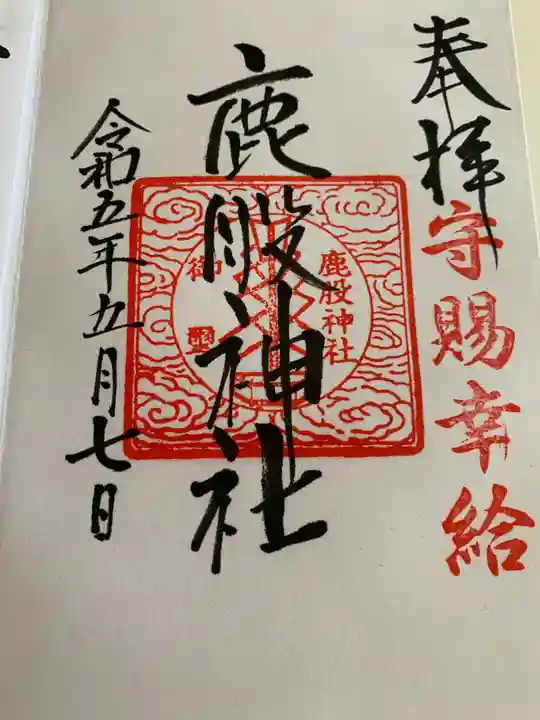 奉拝
守賜幸給
鹿股神社
鹿股神社
御璽
令和五年九月七日